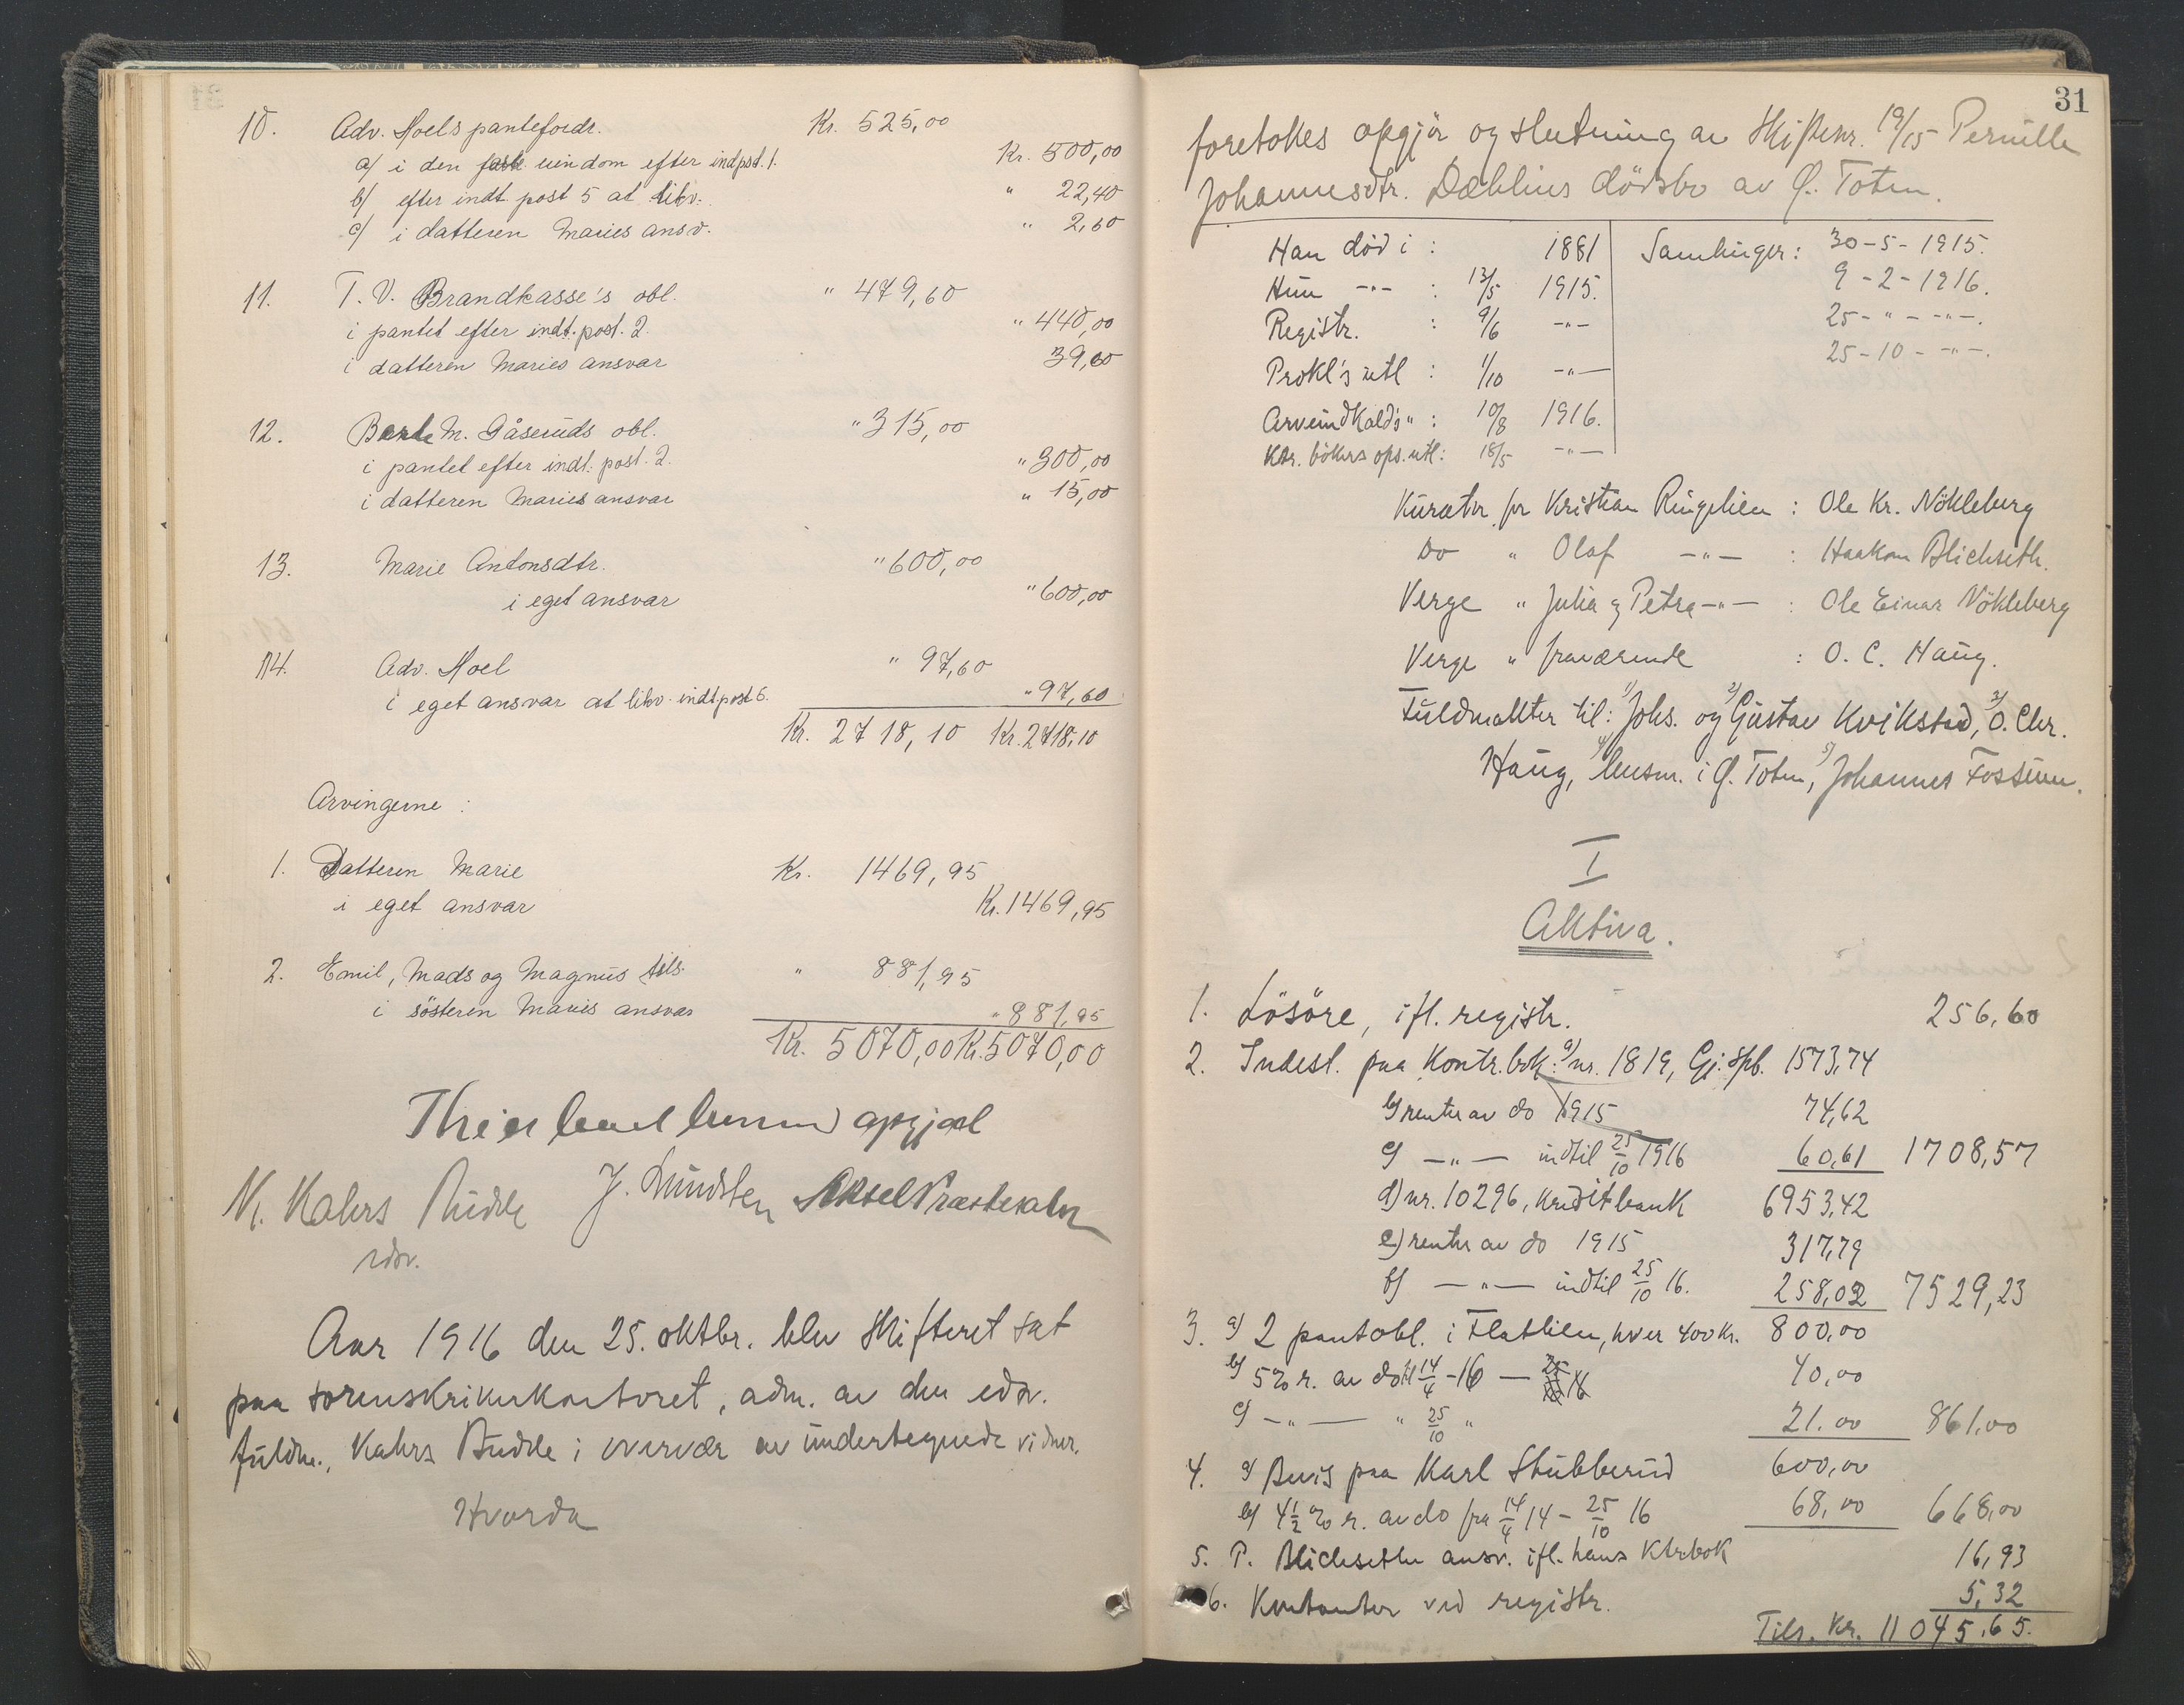 10. Adv. Hoels pantefordr. Kr. 525,00
a) i den faste eiendom efter indpst. 1. Kr. 500,00
b) efter indt. post 5 at likv. " 22,40
c) i datteren Maries ansv. " 2,60
11. T. V. Brandkasse's obl. " 479,60
i pantet efter indt. post. 2. " 440,00
i datteren Maries ansvar 39,60
12. M. Gåseruds obl. " 315,00
i pantet efter indt. post. 2. " 300,00
i datteren Maries ansvar " 15,00
13. Marie Antonsdtr. " 600,00
i eget ansvar " 600,00
14. Adv. Hoel " 97,60
i eget ansvar at likv. indt.post 6. " 97,60
Kr. 2718,10 Kr. 2718,10
Arvingerne :
1. Datteren Marie Kr. 1469,95
i eget ansvar Kr. 1469,95
2. Emil, Mads og Magnus tils. " 881,95
i søsteren Maries ansvar " 881,95
Kr. 5070,00 Kr. 5070,00
opgjørl
N. Kahrs Budde J. Lundsten Aksel Præstesæter
edsv.
Aar 1916 den 25. oktbr. blev skifteret sat
paa sorenskriverkontoret, adm. av den edsv.
fuldm., Kahrs Budde i overvær av undertegnede vidner.
Hvorda
31
foretokes opgjør og slutning av Skiftenr. 19/15 Pernille
Johannesdtr. Dæhlins dødsbo av Ø. Toten.
Han död i : 1881 Samlinger: 30-5-1915.
Hun -"- : 13/5 1915. 9-2-1916.
Registr. : 9/6 -"- 25-"- -"-.
Prokl's utl : 1/10 -"- 25-10- -"-.
Arveindkald's " : 10/8 1916.
Ktr. bökers ops. utl: 18/5 -"-
Kurator for Kristian Ringelien : Ole Kr. Nökleberg
Do " Olaf -"- : Haakon Blichseth.
Verge " Julia og Petra -"- : Ole Einar Nökleberg
Verge " fraværende : O. C. Haug.
Fuldmakter til: 1) Johs. og 2) Gustav Kvikstad, 3) O. Chr.
Haug, 4) lensm. i Ø. Toten, 5) Johannes Fossum.
I
Aktiva.
1. Lösöre, ifl. registr. 256,60
2. Indest. paa Kontr.bok: a) nr. 1819, Gj. Spb. 1573,74
b) renter av do 1915 74,62
c) -"- indtil 25/10 1916 60,61 1708,57
d) nr. 10296, Kreditbank 6953,42
e) renter av do 1915 317,79
f) -"- indtil 25/10 16. 258,02 7529,23
3. a) 2 pantobl. i Flatlien, hver 400 kr. 800,00
b) 5% r. av do til 14/4 -16 — 40,00
c) -"- " 25/10 " 21.00 861,00
4. a) Bevis paa Karl Stubberud 600,00
b) 4 1/2 % r. av do fra 14/4 14 - 25/10 16 68,00 668,00
5. P. Blichseths ansv. ifl. hans Ktrbok 16,93
6. Kontanter ved registr. 5,32
Tils. Kr. 11045,65.